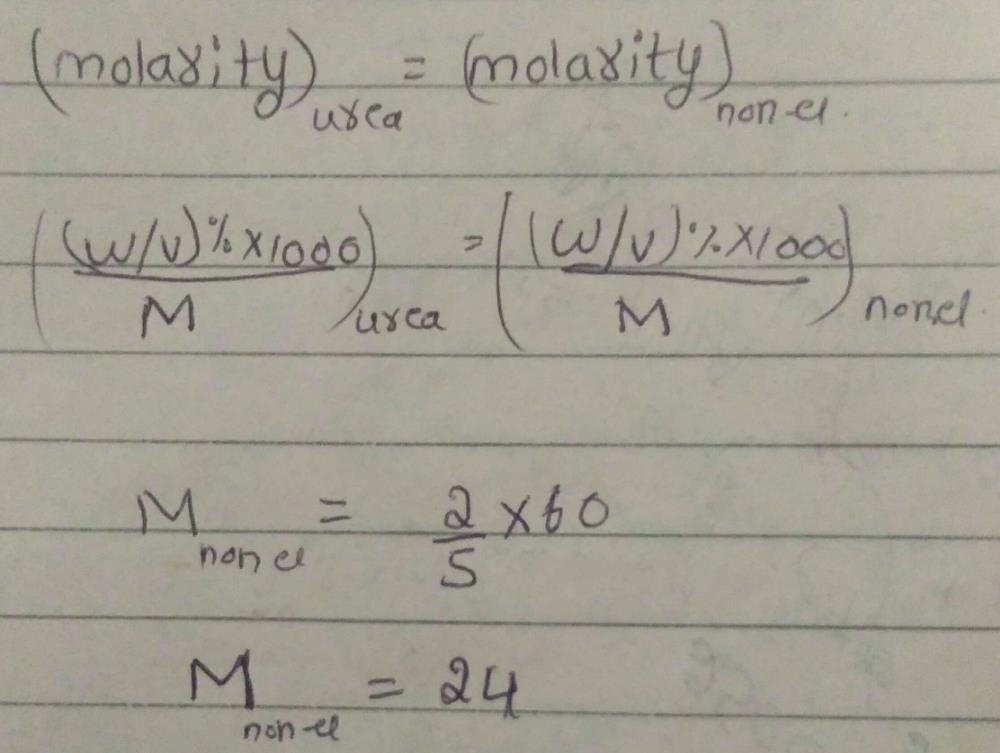 (molarity) urea = (molarity) non-el.
((W/V)% X1000 / M) urea = ((W/V)% X1000 / M) non el.
M non el = 2/5 X 60
M non-el = 24